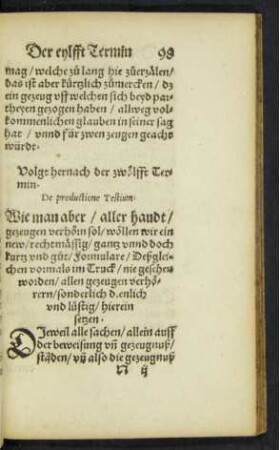 Der eylfft Termin 98
mag / welche zů lang hie züerzälen /
das ist aber kürtzlich zůmercken / dz
ein gezeug vff welchen sich beyd par-
theyen gezogen haben / allweg vol-
kommenlichen glauben in seiner sag
hat / vnnd für zwen zeugen geacht
würdt.
Volgt hernach der zwölfft Ter
min.
De productione Testium.
Wie man aber / aller handt /
gezeugen verhörn sol / wöllen wir ein
new / rechtmässig / gantz vnnd doch
kurtz vnd gůt / Formulare / Deßglei-
chen vormals im Truck / nie geschen
worden / allen gezeugen verhö-
rern / sonderlich dienlich
vnd lüstig / hierein
setzen.
DIeweil alle sachen / allein auff
der beweisung vñ gezeugnuß /
städen / vñ also die gezeugnuß
N ij